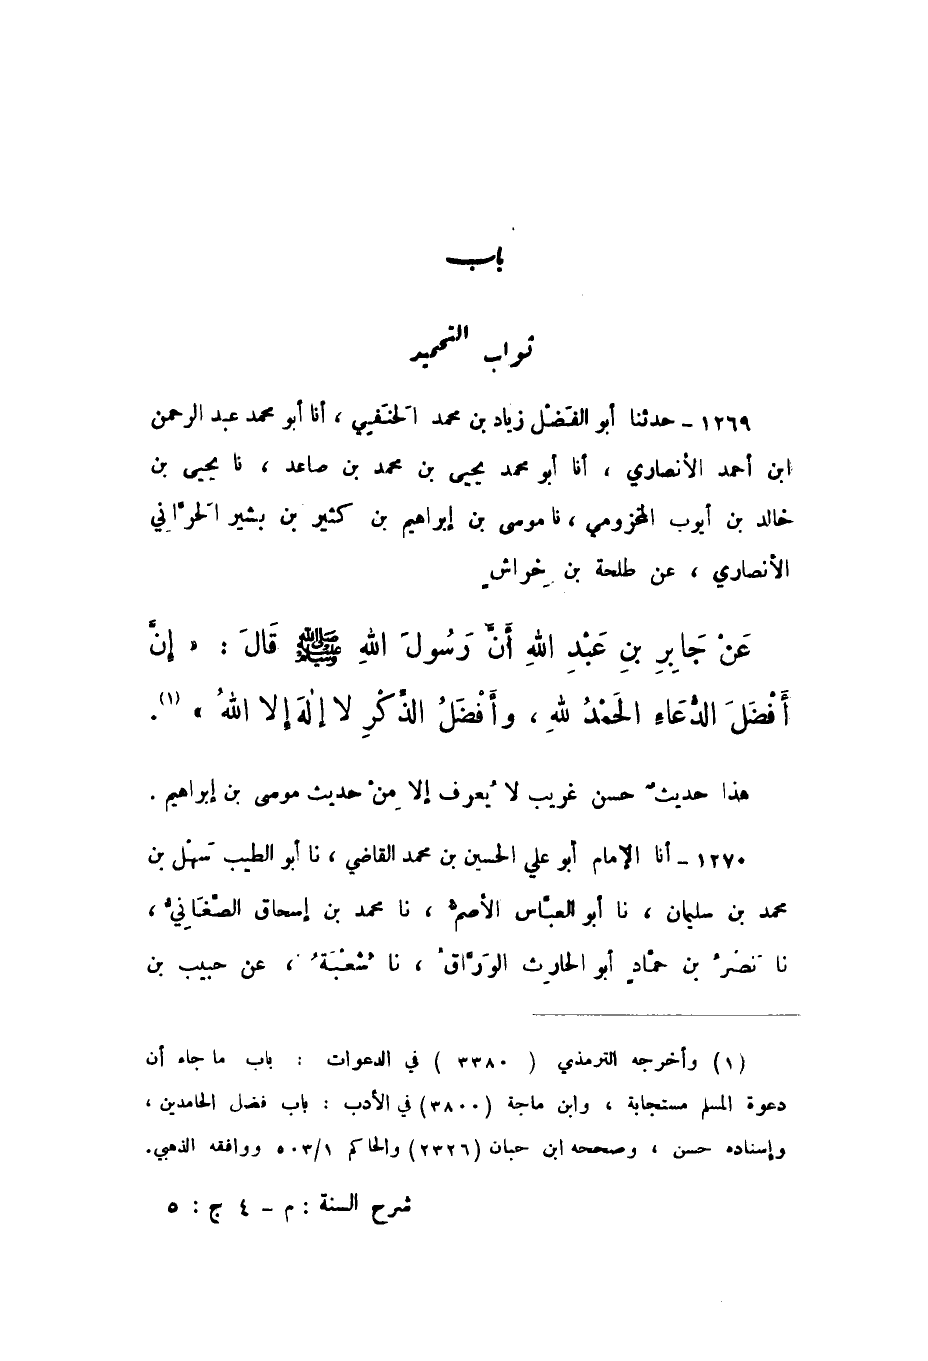 باب
ثواب التحميد
١٢٦٩ - حدثنا أبو الفَضْل زياد بن محمد الحَنَفيي ، أنا أبو محمد عبد الرحمن
ابن أحمد الأنصاري ، أنا أبو محمد يحيى بن محمد بن صاعد ، نا يحيى بن
خالد بن أيوب المخزومي ، نا موسى بن إبراهيم بن كثير بن بشير الحَرَّاني
الأنصاري ، عن طلحة بن خِراشٍ
عَنْ جَابِرِ بنِ عَبْدِ اللهِ أَنَّ رَسُولَ اللهِ ﷺ قَالَ : « إِنَّ
أَفْضَلَ الدُّعَاءِ الحَمْدُ للهِ ، وأَفْضَلُ الذِّكْرِ لا إِلٰهَ إِلا اللهُ » (١).
هذا حديثٌ حسن غريب لا يُعرف إلا مِنْ حديث موسى بن إبراهيم .
١٢٧٠ - أنا الإمام أبو علي الحسين بن محمد القاضي ، نا أبو الطيب سَهْل بن
محمد بن سليمان ، نا أبو العبَّاس الأصمُّ ، نا محمد بن إسحاق الصَّغَانيُّ ،
نا نَصْرُ بن حمَّادٍ أبو الحارِث الورَّاقُ ، نا شُعْبَةُ ، عن حبيب بن
(١) وأخرجه الترمذي ( ٣٣٨٠ ) في الدعوات : باب ما جاء أن
دعوة المسلم مستجابة ، وابن ماجة (٣٨٠٠) في الأدب : باب فضل الحامدين ،
وإسناده حسن ، وصححه ابن حبان (٢٣٢٦) والحاكم ٥٠٣/١ ووافقه الذهبي.
شرح السنة : م - ٤ ج : ٥